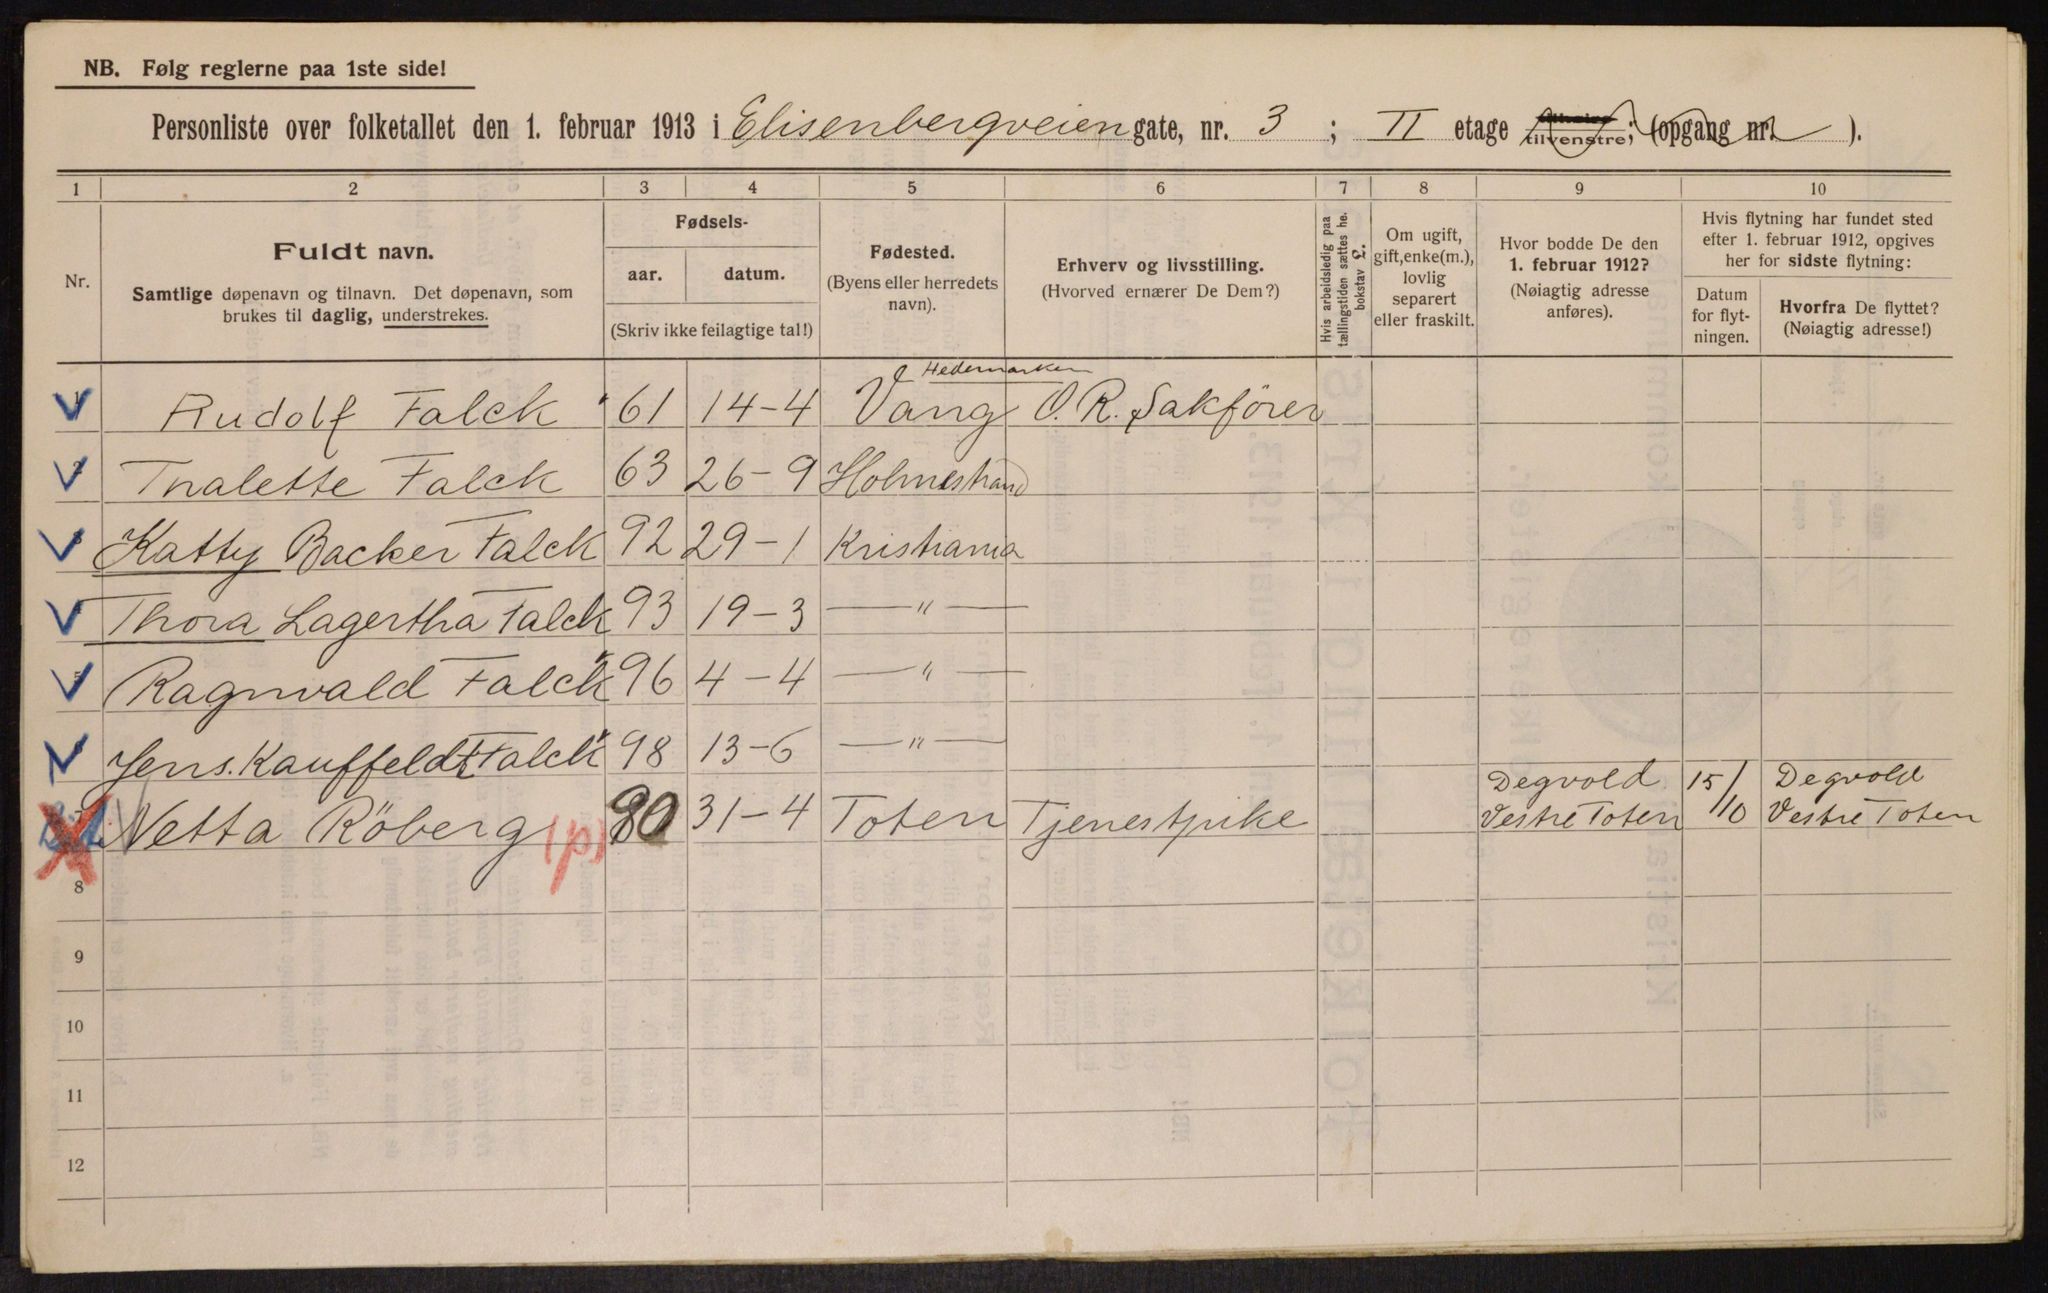 NB. Følg reglerne paa 1ste side!
Personliste over folketallet den 1. februar 1913 i Elisenbergveien gate, nr. 3 ; II etage tilvenstre; (opgang nr. ).
1 2 3 4 5 6 7 8 9 10
Nr.
Fuldt navn.
Samtlige døpenavn og tilnavn. Det døpenavn, som
brukes til daglig, understrekes.
Fødsels-
aar. datum.
(Skriv ikke feilagtige tal!)
Fødested.
(Byens eller herredets
navn).
Erhverv og livsstilling.
(Hvorved ernærer De Dem?)
Hvis arbeidsledig paa
tællingstiden sættes he.
bokstav L.
Om ugift,
gift, enke(m.),
lovlig
separert
eller fraskilt.
Hvor bodde De den
1. februar 1912?
(Nøiagtig adresse
anføres).
Hvis flytning har fundet sted
efter 1. februar 1912, opgives
her for sidste flytning:
Datum
for flyt-
ningen.
Hvorfra De flyttet?
(Nøiagtig adresse!)
Hedemarken
Rudolf Falck 61 14-4 Vang O. R. Sakfører
Thalette Falck 63 26-9 Holmestrand
Katty Backer Falck 92 29-1 Kristiania
Thora Lagertha Falck 93 19-3 — " —
Ragnvald Falck 96 4-4 — " —
Jens. Kauffeldt Falck 98 13-6 — " —
Degvold 15/10 Degvold
Netta Röberg (p) 80 31-4 Toten Tjenestpike Vestre Toten Vestre Toten
8
9
10
11
12